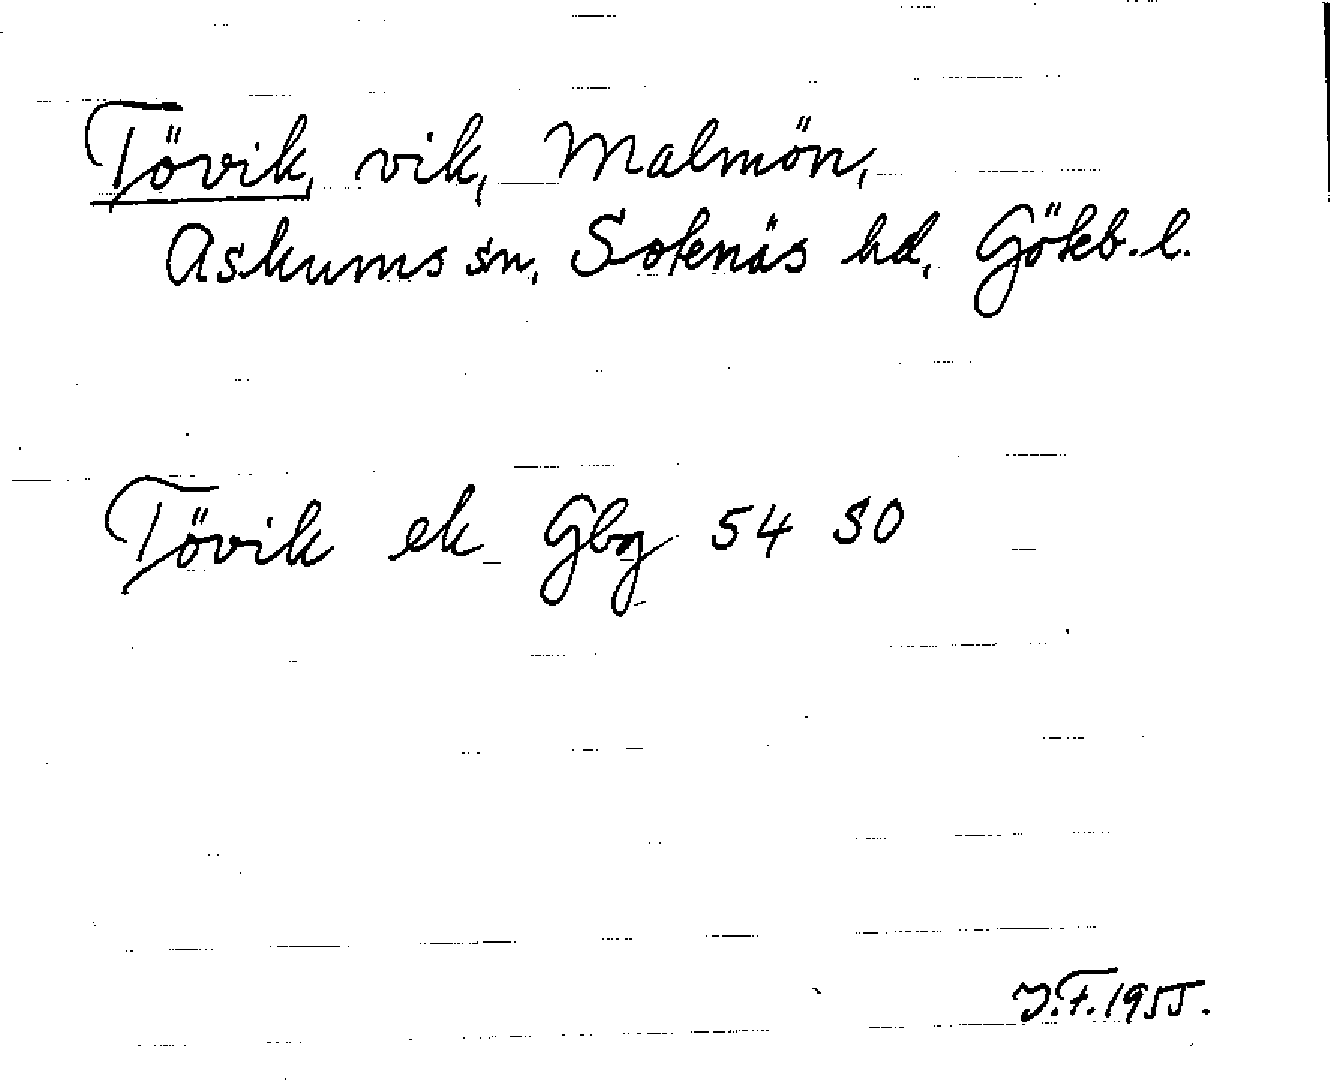 Tövik, vik, Malmön,
Askums sn, Sotenäs hd, Göteb. l.
Tövik ek Gbg 54 SO
J.F. 1955.